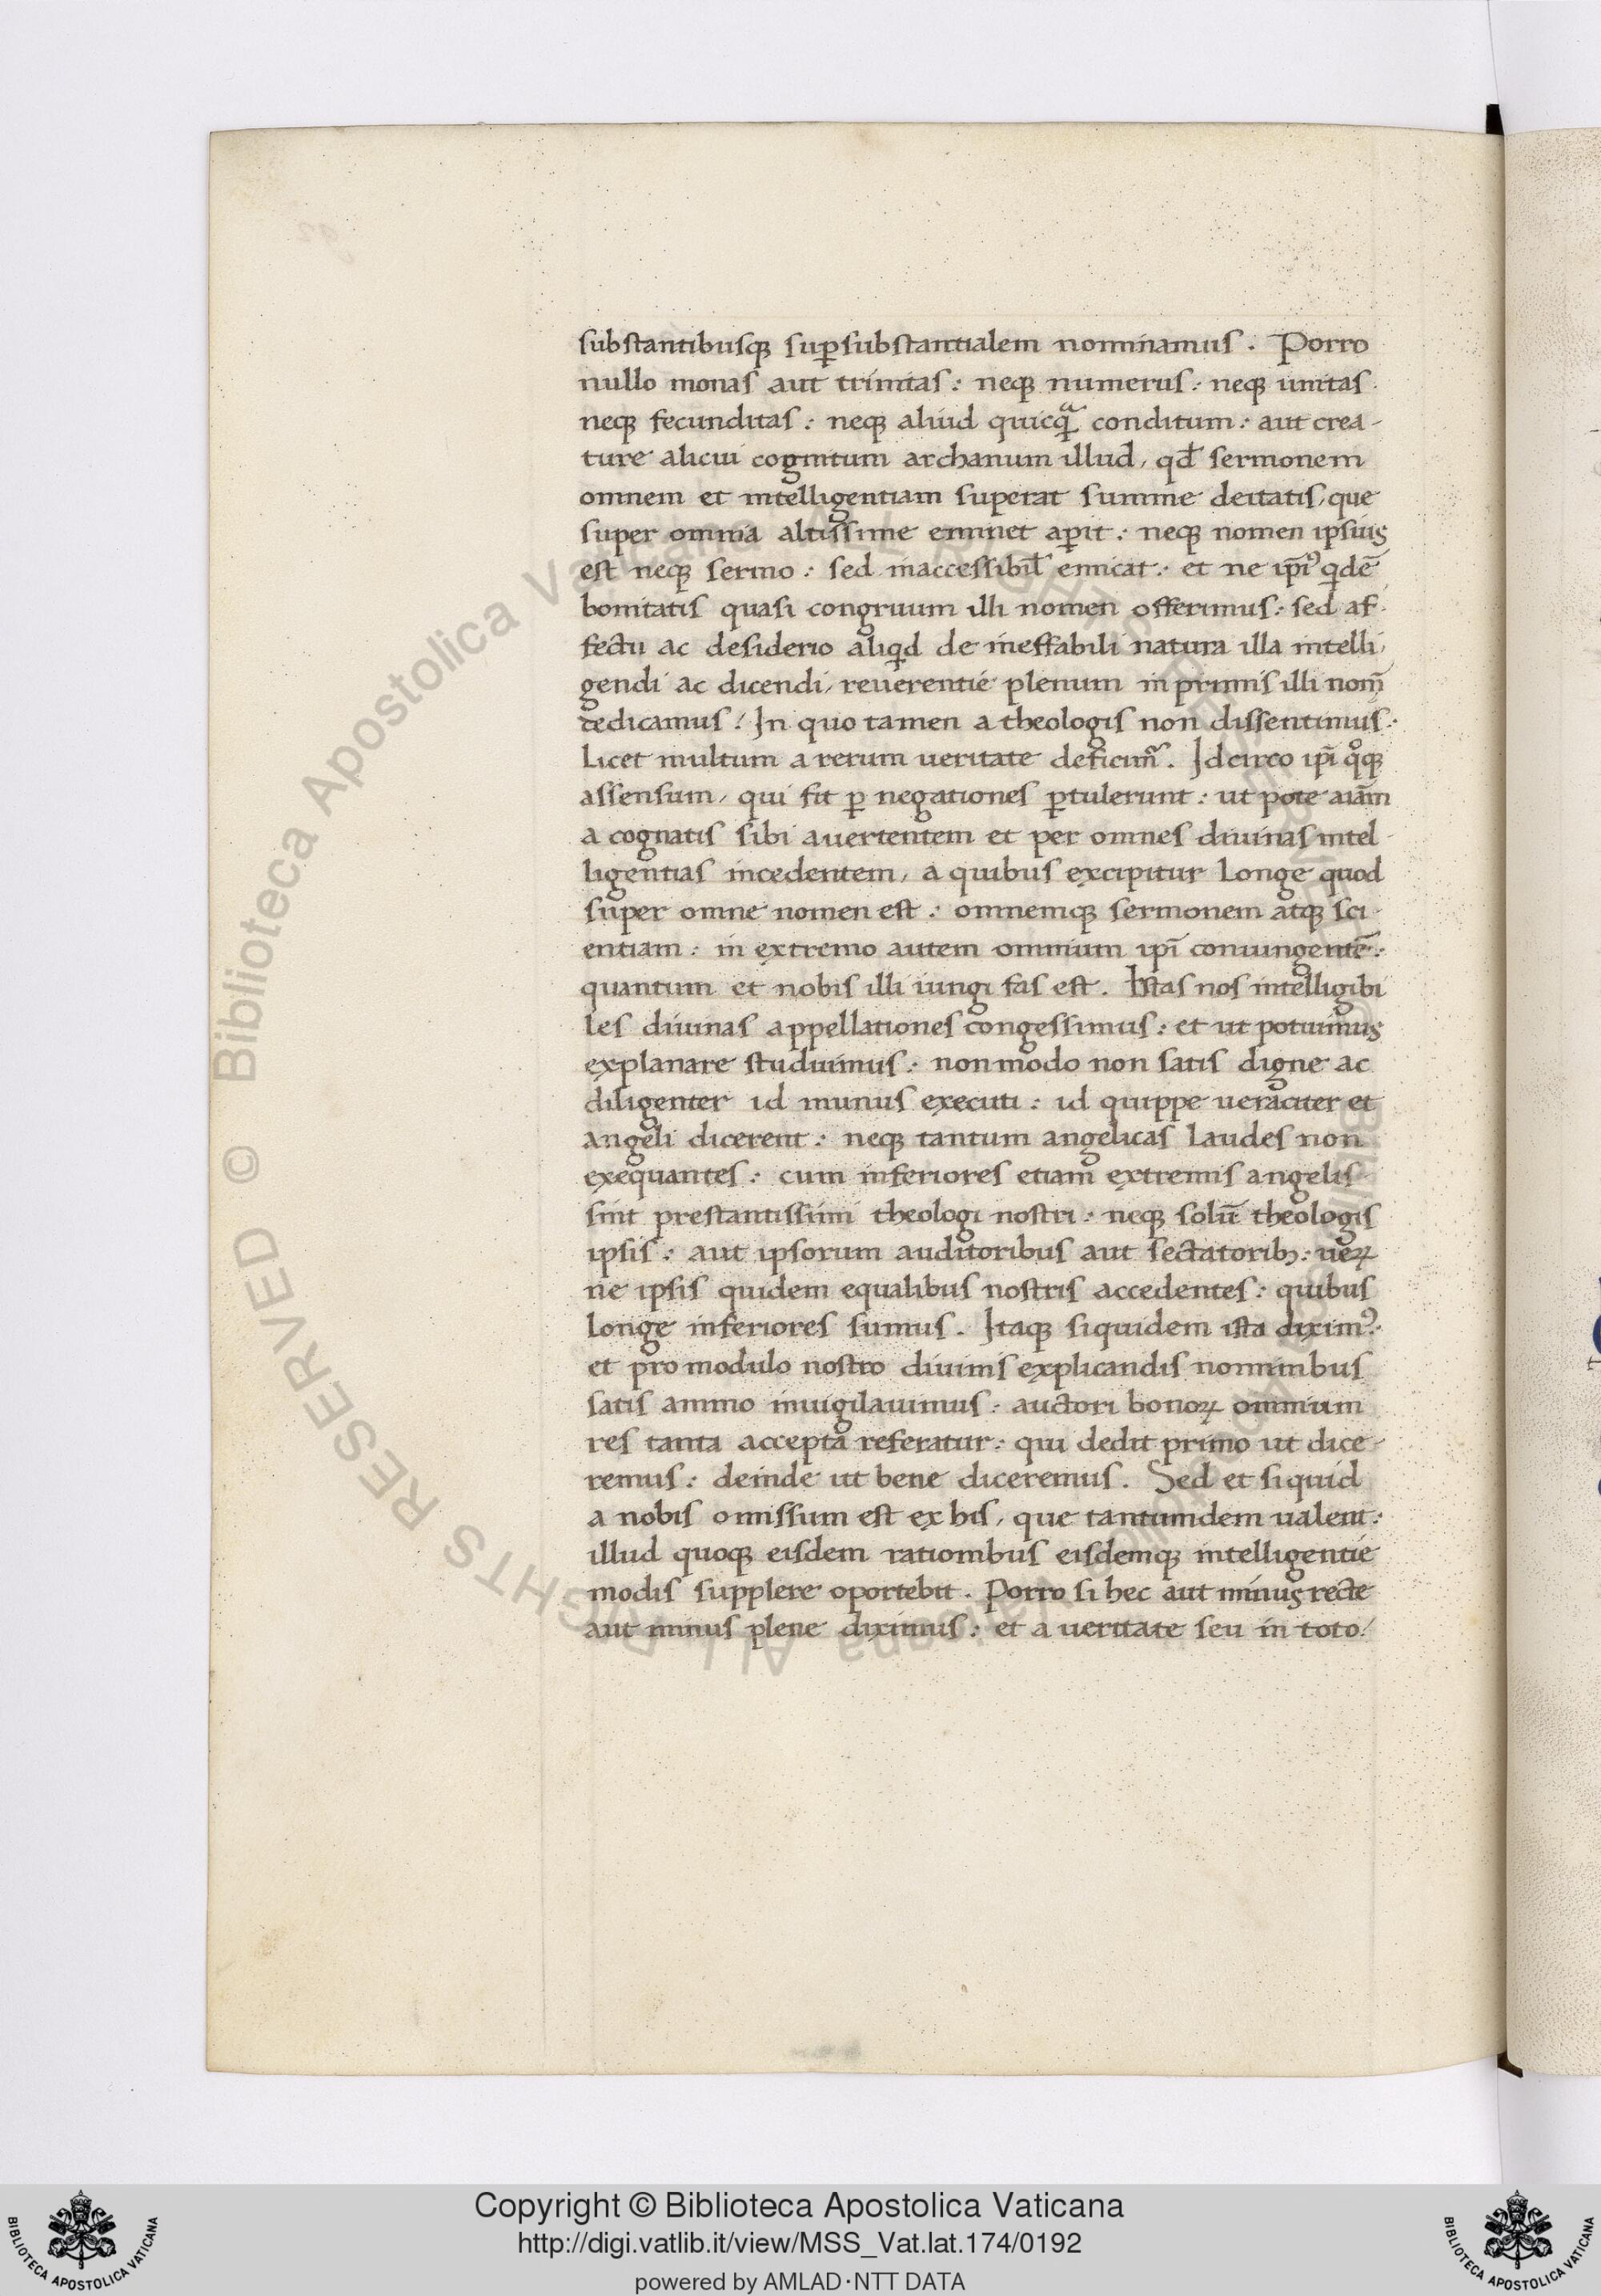 substantibusqꝫ suꝑsubstantialem nominamus. Porro
nullo monas aut trinitas: neqꝫ numerus: neqꝫ unitas
neqꝫ fecunditas: neqꝫ aliud quicqᷓ conditum: aut crea-
ture alicui cognitum archanum illud, qd̄ sermonem
omnem et intelligentiam superat summe deitatis, que
super omnia altissime eminet aꝑit: neqꝫ nomen ipsius
est neqꝫ sermo: sed inaccessibil̄ emicat: et ne ip̄iꝰ qdē
bonitatis quasi congruum illi nomen offerimus: sed af-
fectu ac desiderio aliqd de ineffabili natura illa intelli-
gendi ac dicendi, reuerentie plenum in primis illi nom̄
dedicamus! In quo tamen a theologis non dissentimus:
Licet multum a rerum ueritate deficim̃. Idcirco ip̄i qͦqꝫ
assensum, qui fit ꝑ negationes ꝑtulerunt: ut pote aiām
a cognatis sibi auertentem et per omnes diuinas intel-
ligentias incedentem, a quibus excipitur Longe quod
super omne nomen est: omnemqꝫ sermonem atqꝫ sci-
entiam: in extremo autem omnium ip̄i coniungentē:
quantum et nobis illi iungi fas est. Istas nos intelligibi
les diuinas appellationes congessimus: et ut potuimus
explanare studuimus: non modo non satis digne ac
diligenter id munus executi: id quippe ueraciter et
angeli dicerent: neqꝫ tantum angelicas Laudes non
exequantes: cum inferiores etiam extremis angelis
sint prestantissimi theologi nostri: neqꝫ solū theologis
ipsis: aut ipsorum auditoribus aut sectatoribꝫ: ueꝝ
ne ipsis quidem equalibus nostris accedentes: quibus
Longe inferiores sumus. Itaqꝫ siquidem ista diximꝰ:
et pro modulo nostro diuinis explicandis nominibus
satis animo inuigilauimus: auctori bonoꝝ omnium
res tanta accepta referatur: qui dedit primo ut dice-
remus: deinde ut bene diceremus. Sed et siquid
a nobis omissum est ex his, que tantumdem ualent:
illud quoqꝫ eisdem rationibus eisdemqꝫ intelligentie
modis supplere oportebit. Porro si hec aut minus recte
aut minus plene diximus: et a ueritate seu in toto!
© Biblioteca Apostolica Vaticana ALL RIGHTS RESERVED
Copyright © Biblioteca Apostolica Vaticana
http://digi.vatlib.it/view/MSS_Vat.lat.174/0192
powered by AMLAD·NTT DATA
BIBLIOTECA APOSTOLICA VATICANA
BIBLIOTECA APOSTOLICA VATICANA